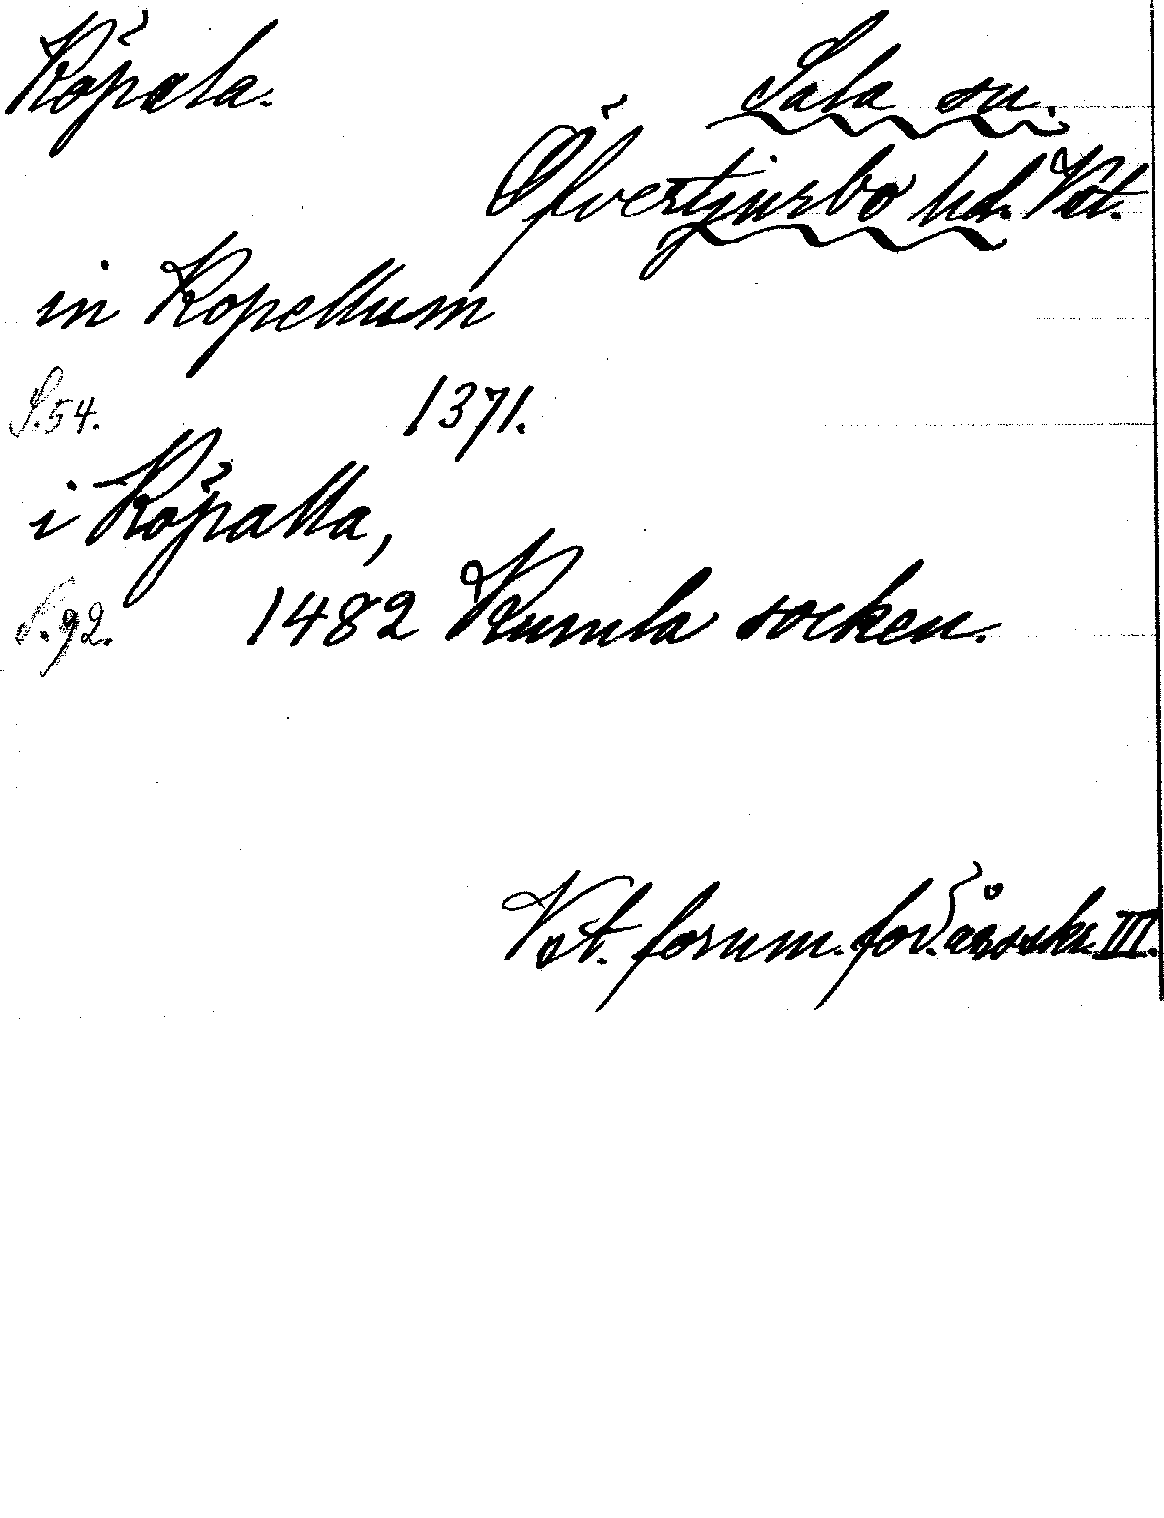 Köpala.
Sala sn.
Öfvertjurbo hd. Vst.
in Kopellum
S. 54. 1371.
i Köpalla,
S. 92. 1482 Kumla socken.
Vst. fornm. för. årsskr. III.